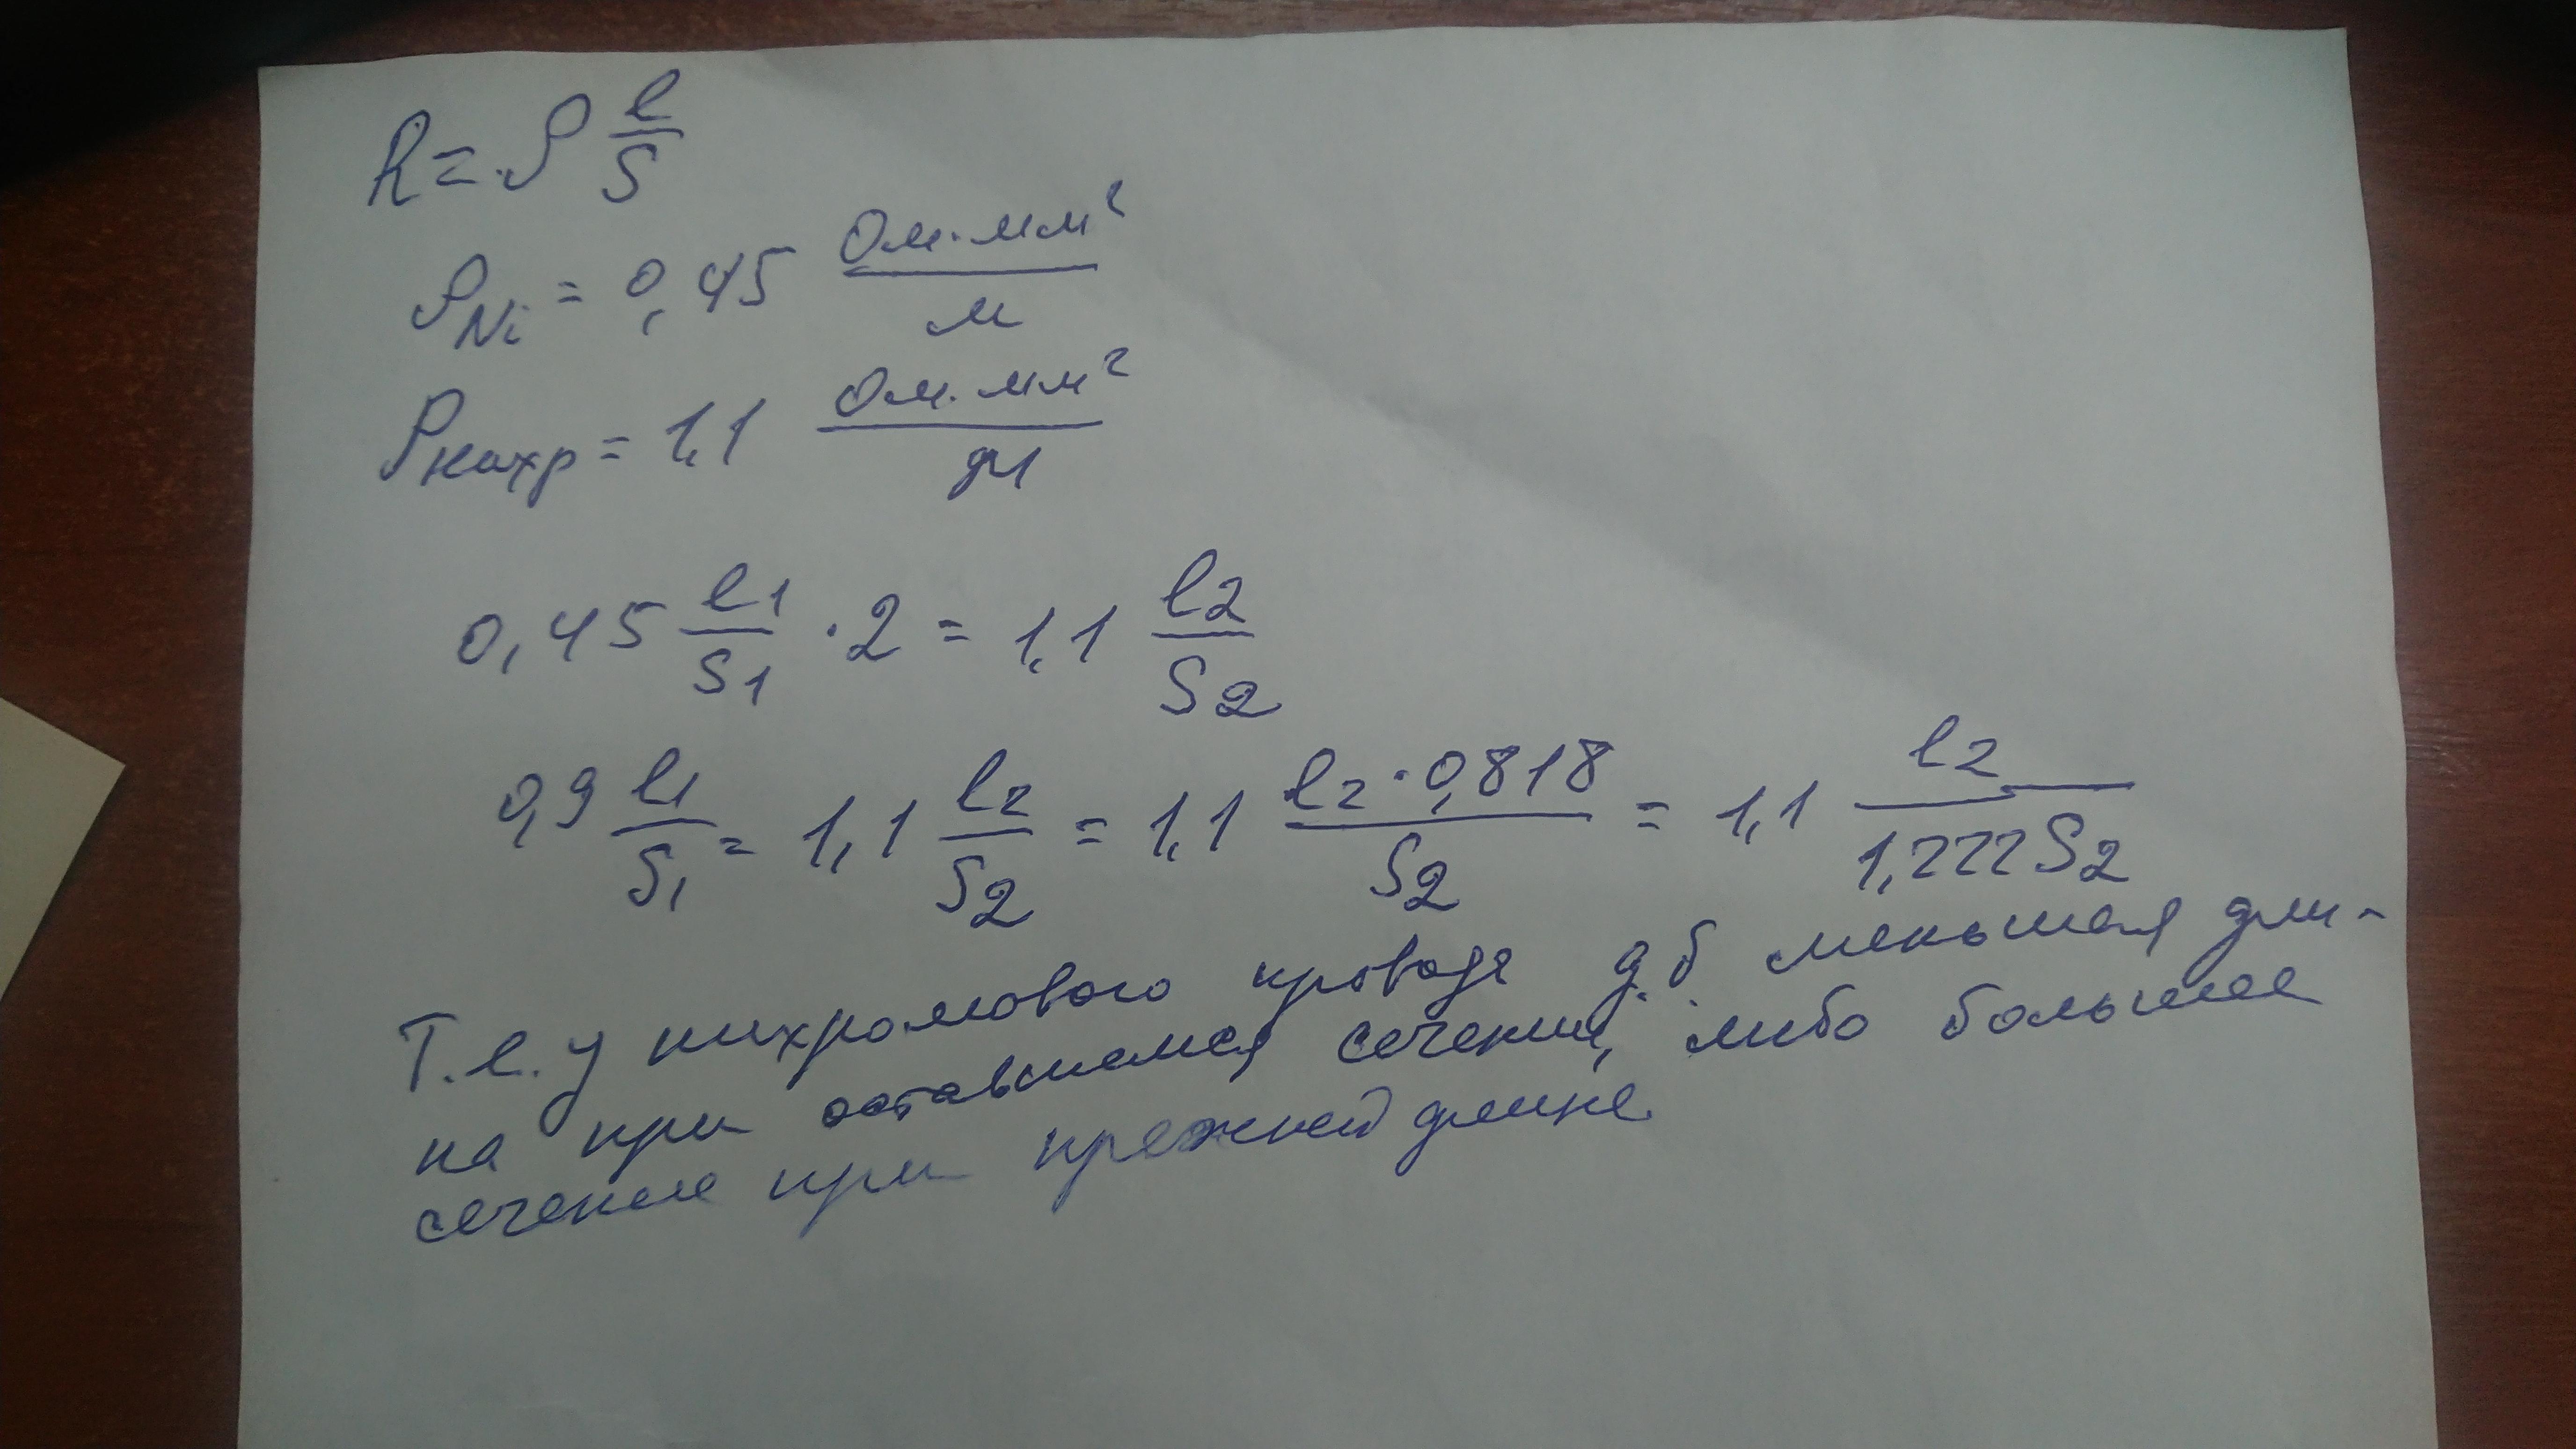 R = ρ l/S
ρNi = 0,45 Ом·мм²/м
ρнихр = 1,1 Ом·мм²/м
0,45 l1/S1 · 2 = 1,1 l2/S2
0,9 l1/S1 = 1,1 l2/S2 = 1,1 l2·0,818/S2 = 1,1 l2/1,222S2
Т.е. у нихромового провода д.б меньшая дли-
на при оставшемся сечении, либо большее
сечение при прежней длине